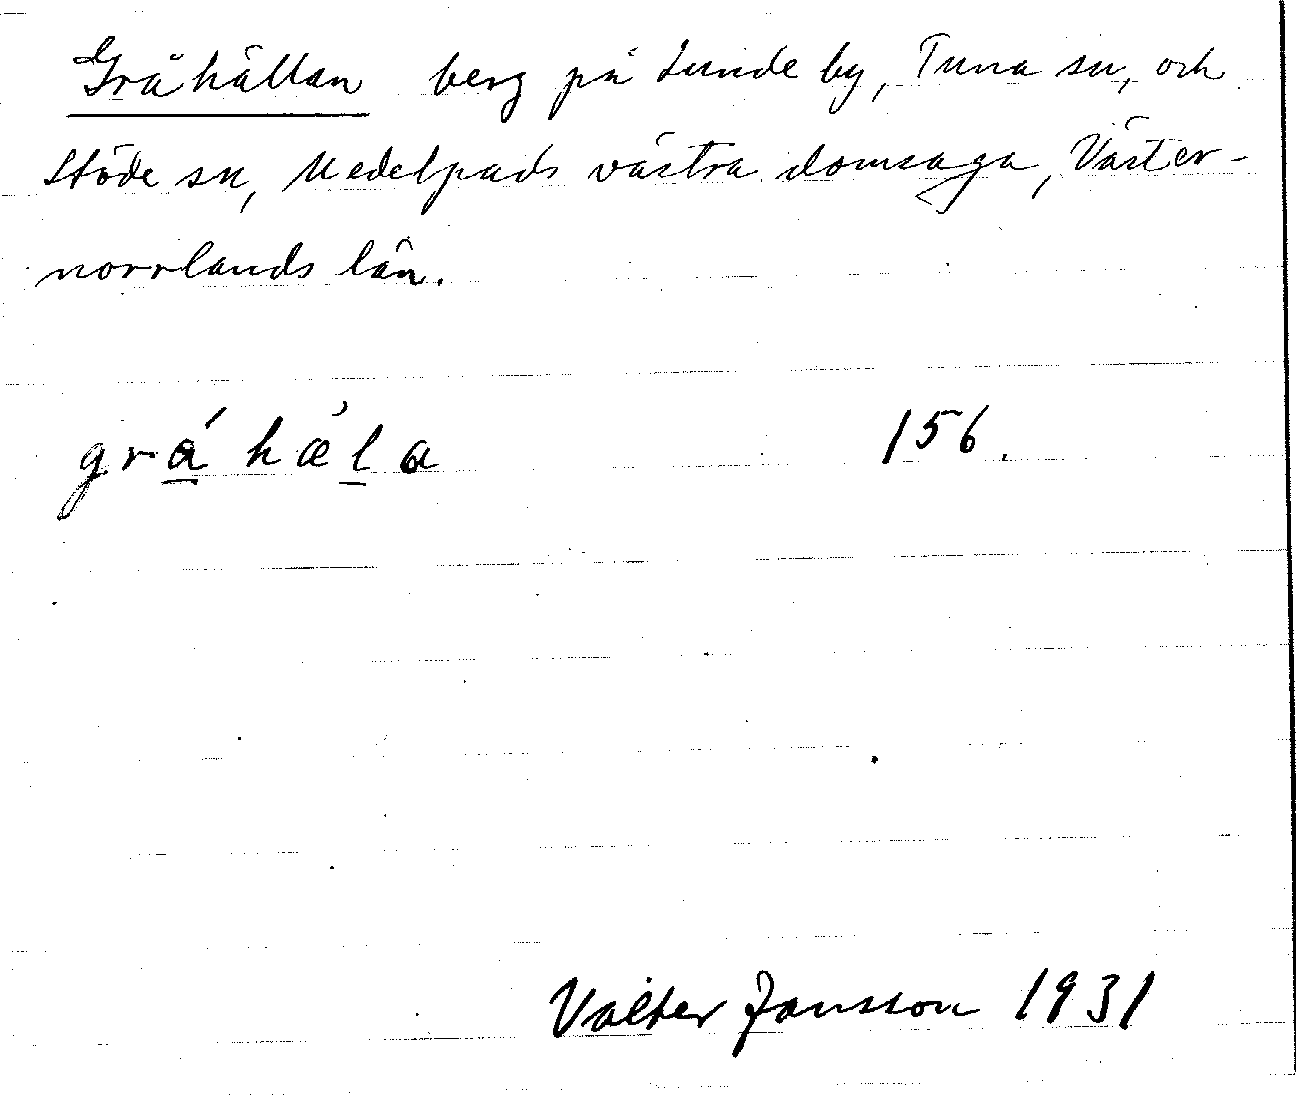 Gråhällan berg på Lunde by, Tuna sn, och
Stöde sn, Medelpads västra domsaga, Väster-
norrlands län.
grá hæ̀la 156.
Valter Jansson 1931